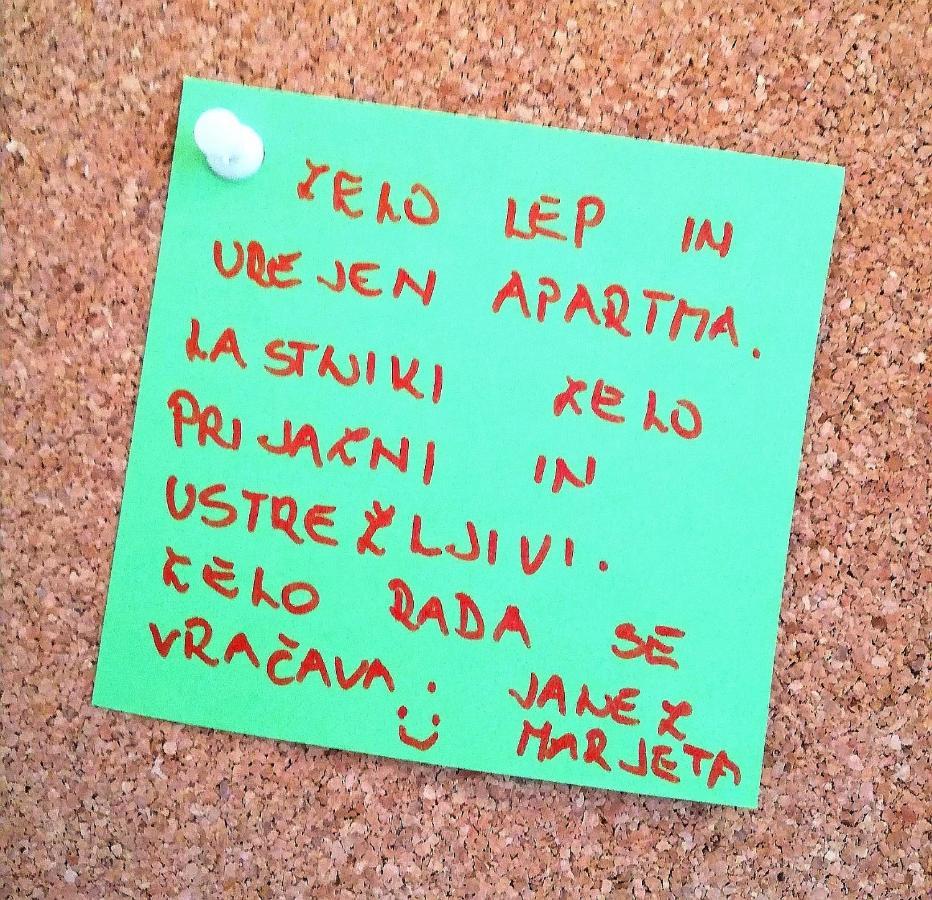 ŽELO LEP IN
UREJEN APARTMA.
LASTNIKI ŽELO
PRIJAZNI IN
USTREŽLJIVI.
ŽELO RADA SE
VRAČAVA. JANEZ
:) MARJETA